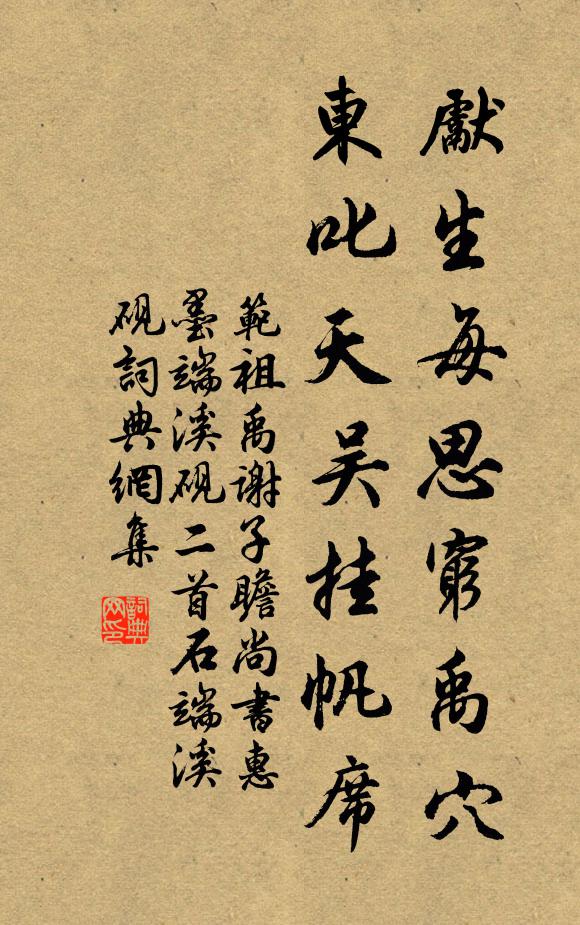 獻生每思窮禹穴
東叱天吴挂帆席
範祖禹謝子瞻尚書惠
墨端溪硯二首石端溪
硯詞典網集
詞典
网印